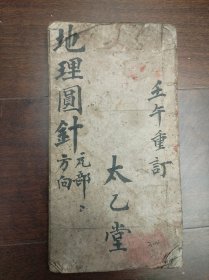 壬午重訂
太乙堂
地理圓針
元部
方向